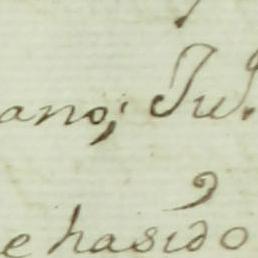 ano; Tu.
e hasido